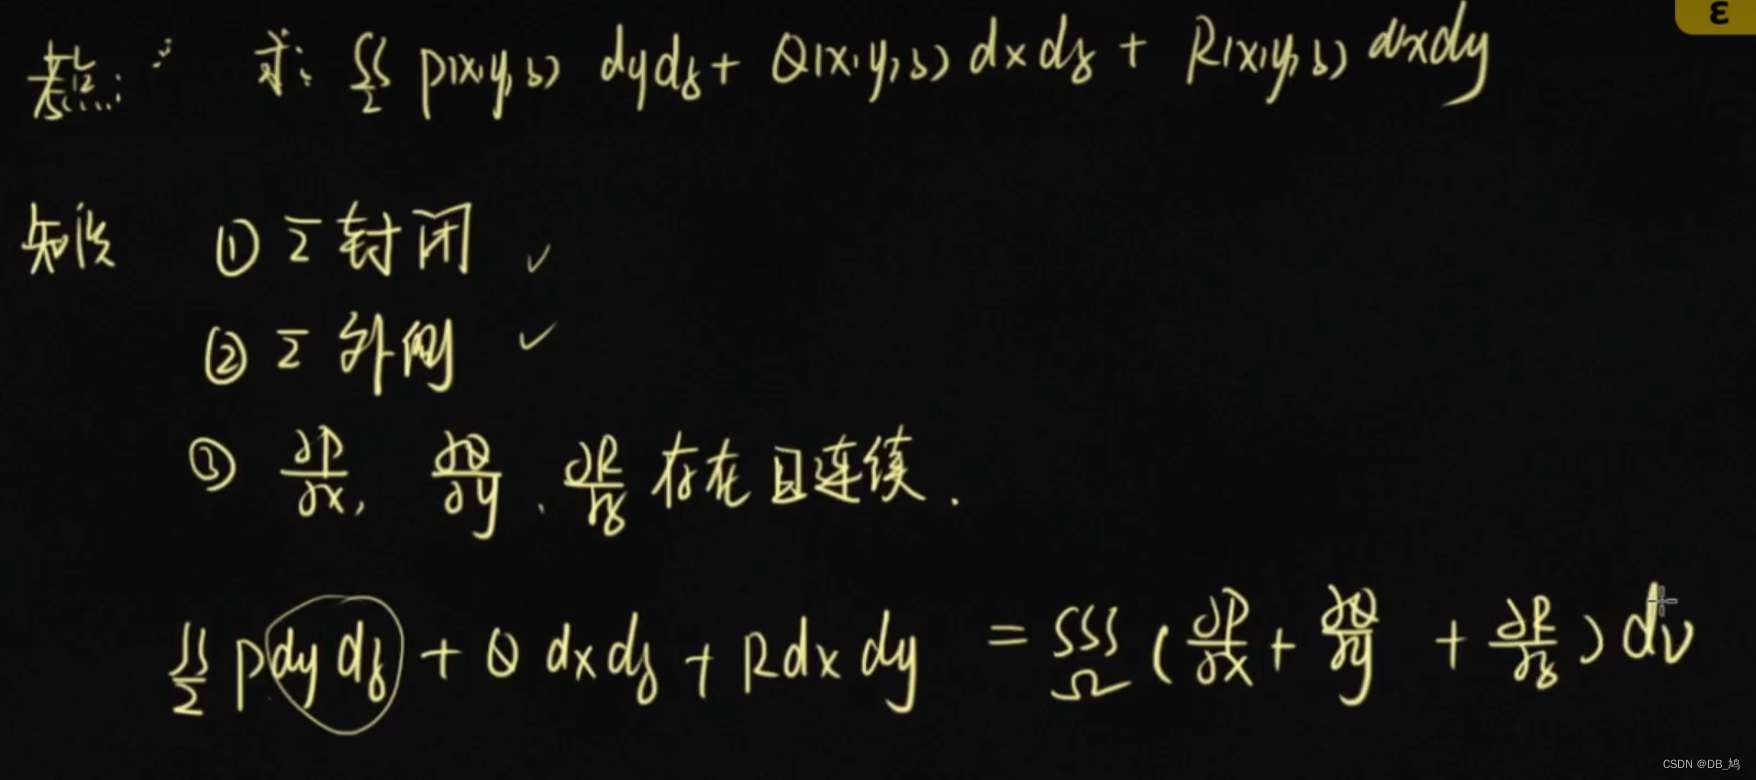 考点: 求: ∬_Σ P(x,y,z) dydz + Q(x,y,z) dxdz + R(x,y,z) dxdy
知识 ① Σ封闭 ✓
② Σ外侧 ✓
③ ∂P/∂x, ∂Q/∂y、∂R/∂z 存在且连续.
∬_Σ Pdydz + Q dxdz + Rdxdy = ∭_Ω (∂P/∂x + ∂Q/∂y + ∂R/∂z) dv
CSDN @DB_鸠